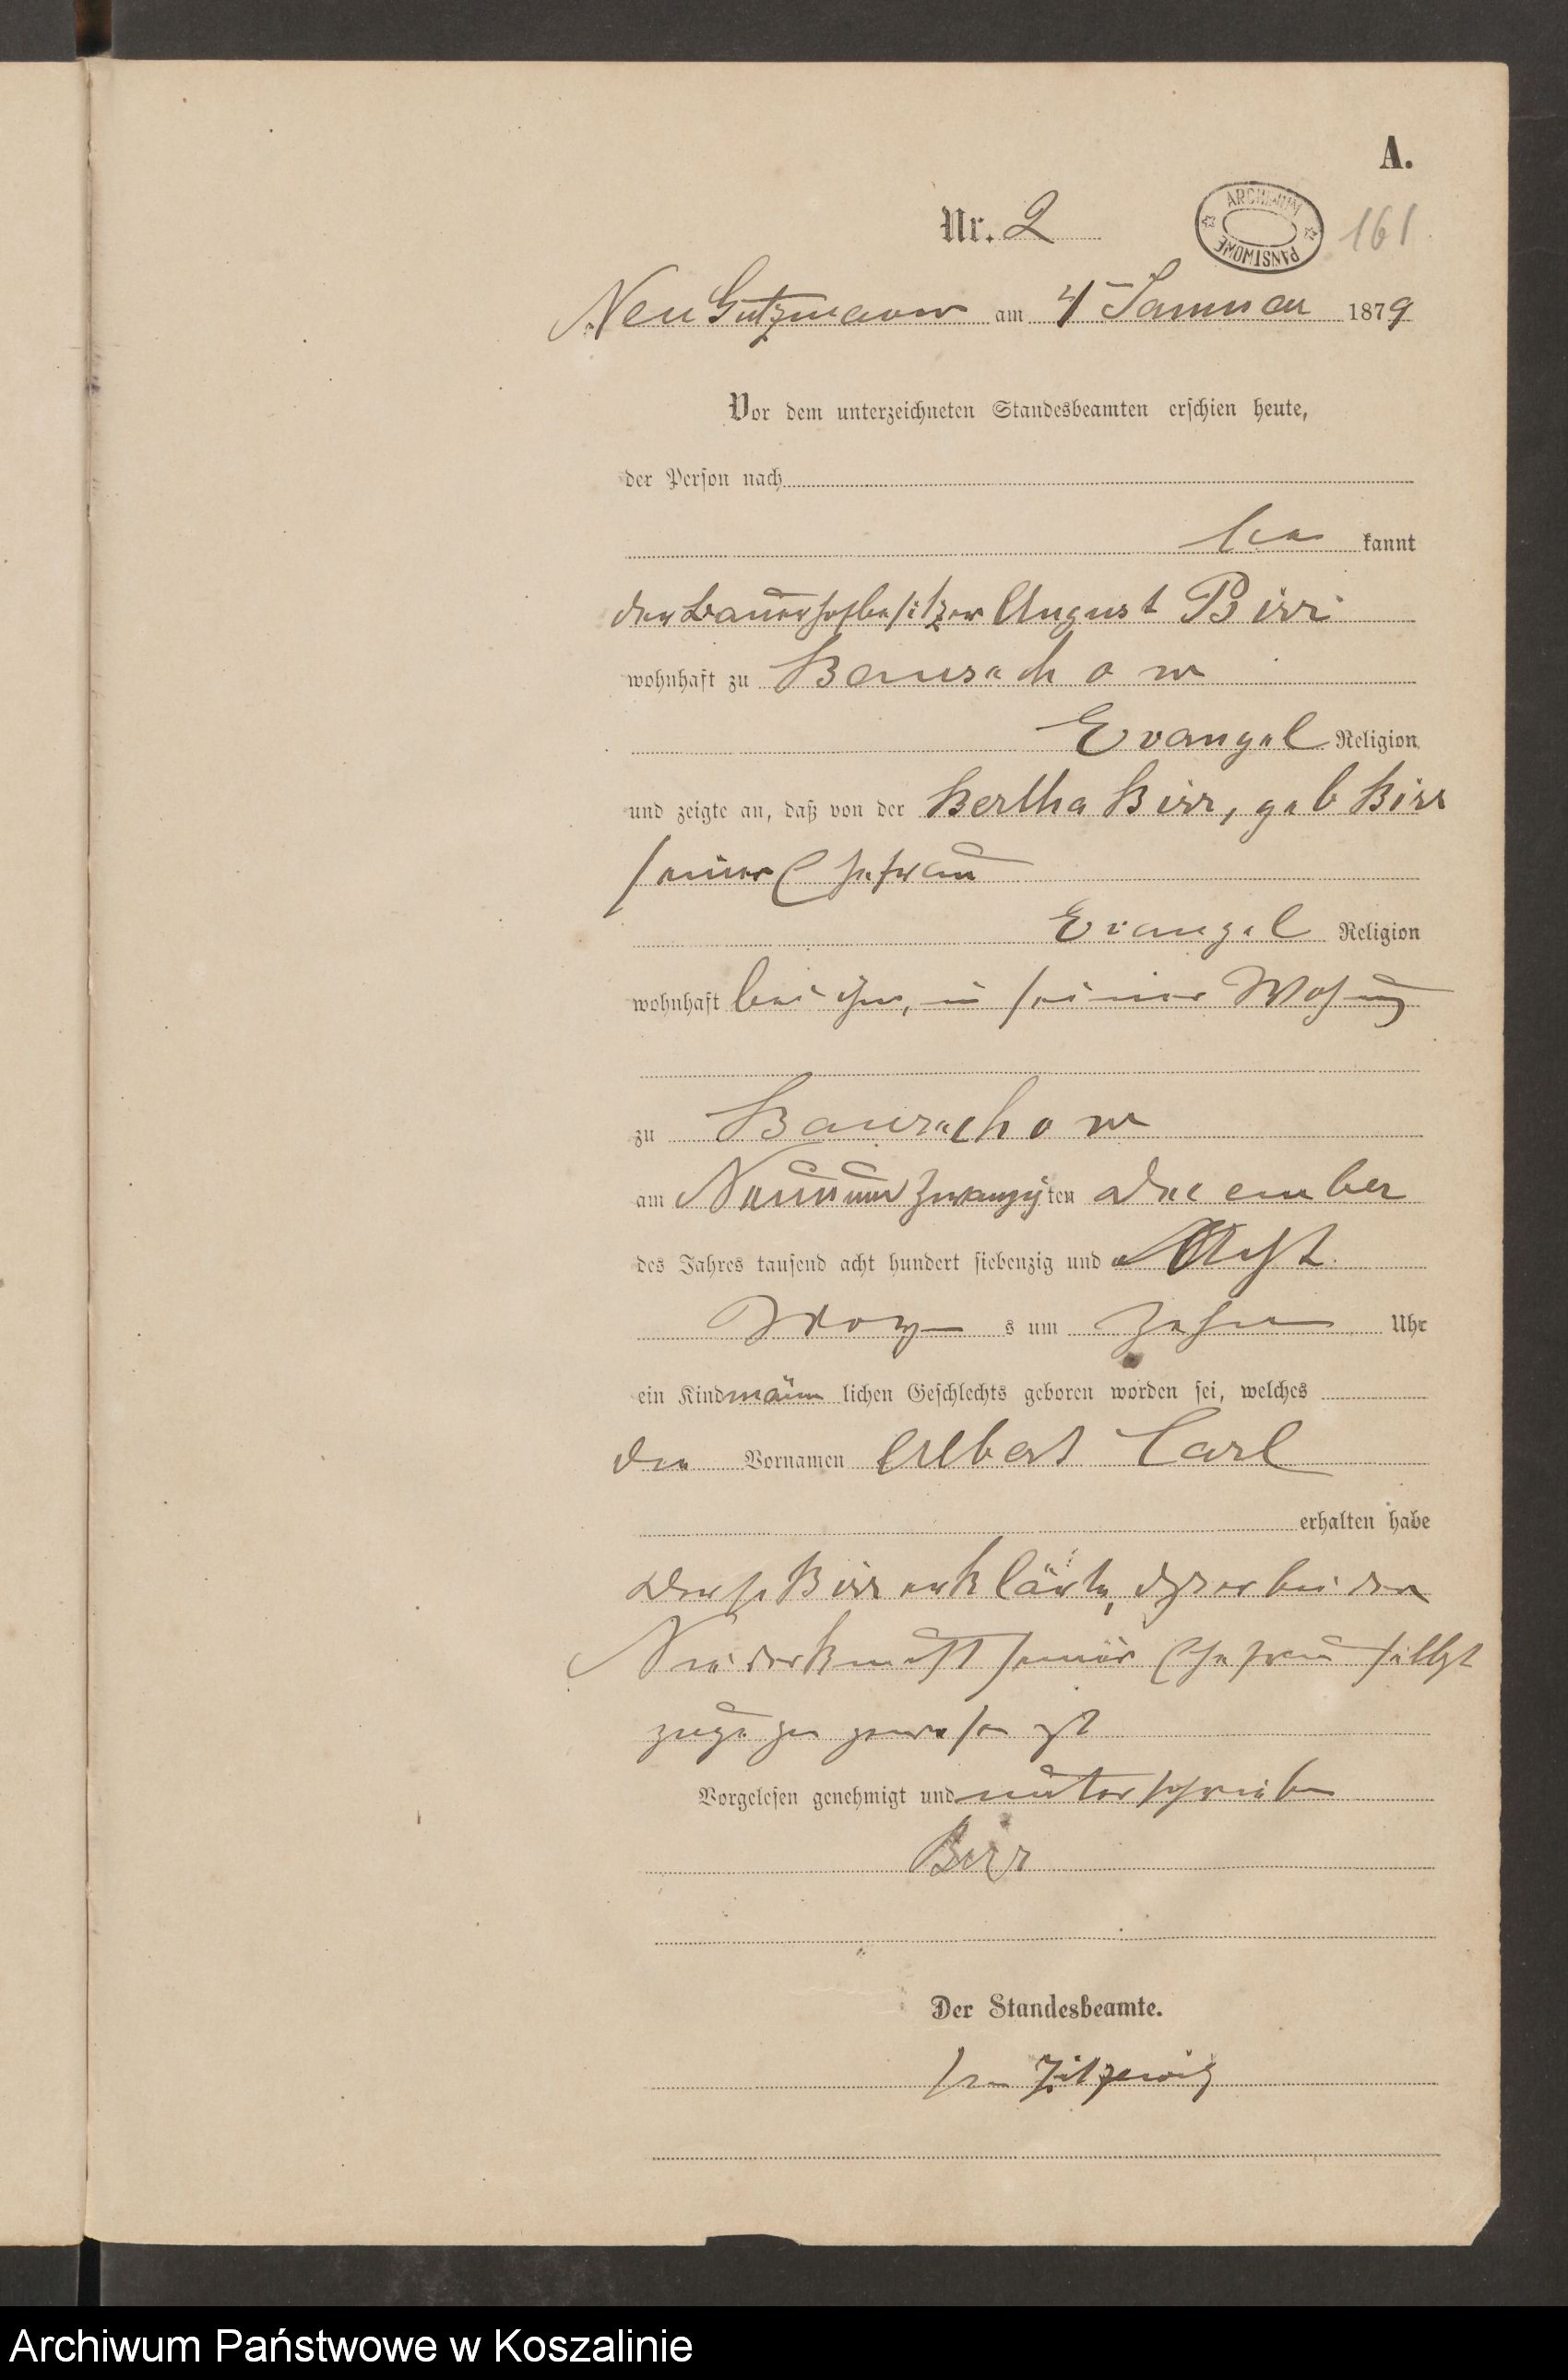 A.
Nr. 2
ARCHIWUM PAŃSTWOWE
161
Neu Gutzmerow am 4 Januar 1879
Vor dem unterzeichneten Standesbeamten erschien heute,
der Person nach
be kannt
der Bauerhofbesitzer August Birr
wohnhaft zu
Evangel Religion
und zeigte an, daß von der Bertha Birr, geb Birr
seiner Ehefrau
Evangel Religion
wohnhaft bei ihm, in seiner Wohnung
zu
am Neunundzwanzigten December
des Jahres tausend acht hundert siebenzig und Acht
s um Zehn Uhr
ein Kind männ lichen Geschlechts geboren worden sei, welches
die Vornamen Albert Carl
erhalten habe
Birr erklärte, daß er bei der
Niederkunft seiner Ehefrau selbst
zugegen gewesen ist
Vorgelesen genehmigt und unterschrieben
Birr
Der Standesbeamte.
von Zitzewitz
Archiwum Państwowe w Koszalinie